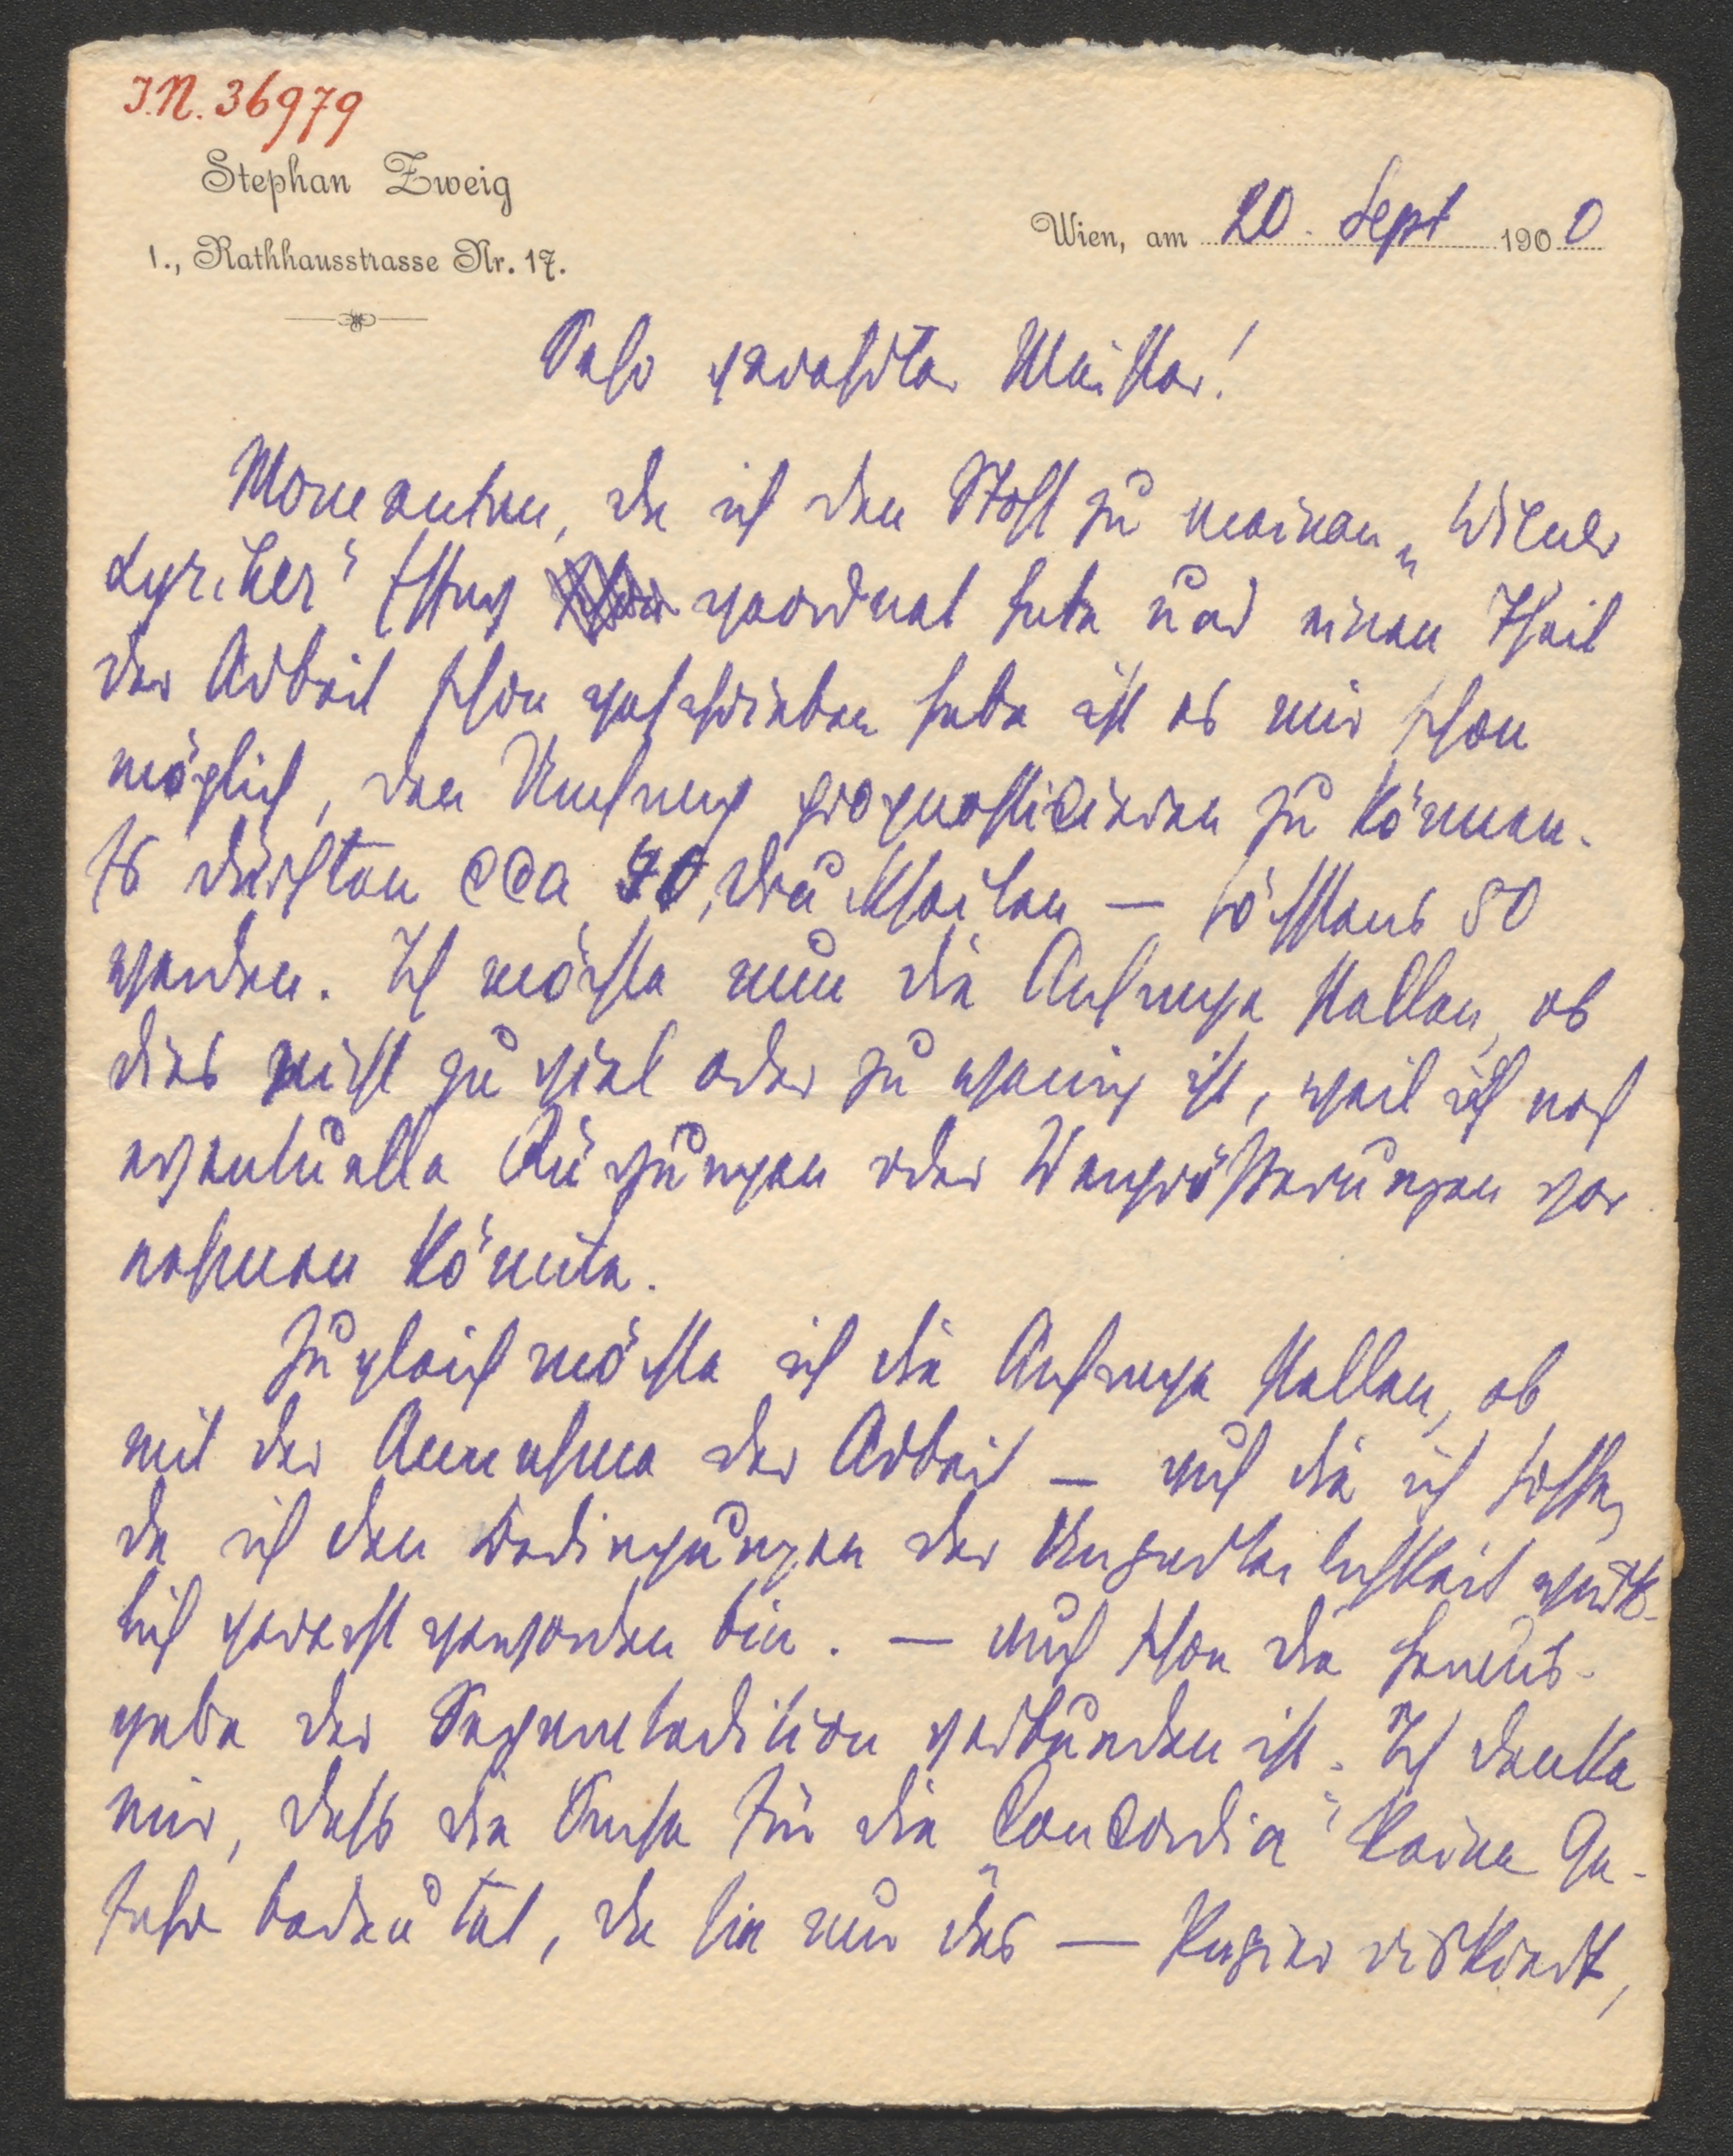 J.N. 36979
Stephan Zweig
I., Rathhausstrasse Nr. 17.
Wien, am 20. Sept 1900
Sehr geehrter Meister!
Momentan, da ich den Stoff zu meinen „Wiener
Lyriker" Essay geordnet habe und einen Theil
der Arbeit schon geschrieben habe ist es mir schon
möglich, den Umfang prognosticieren zu können.
Es dürften cca 70 Druckseiten — höchstens 80
werden. Ich möchte nun die Anfrage stellen, ob
dies nicht zu viel oder zu wenig ist, weil ich noch
eventuelle Kürzungen oder Vergrößerungen vor
nehmen könnte.
Zugleich möchte ich die Anfrage stellen, ob
mit der Annahme der Arbeit — auf die ich hoffe,
da ich den Bedingungen der Unparteilichkeit wirk-
lich gerecht geworden bin. — auch schon die Heraus-
gabe der Separatedition verbunden ist. Ich denke
mir, dass die Sache für die „Concordia" keine Ge-
fahr bedeutet, da sie nur das — Papier riskiert,